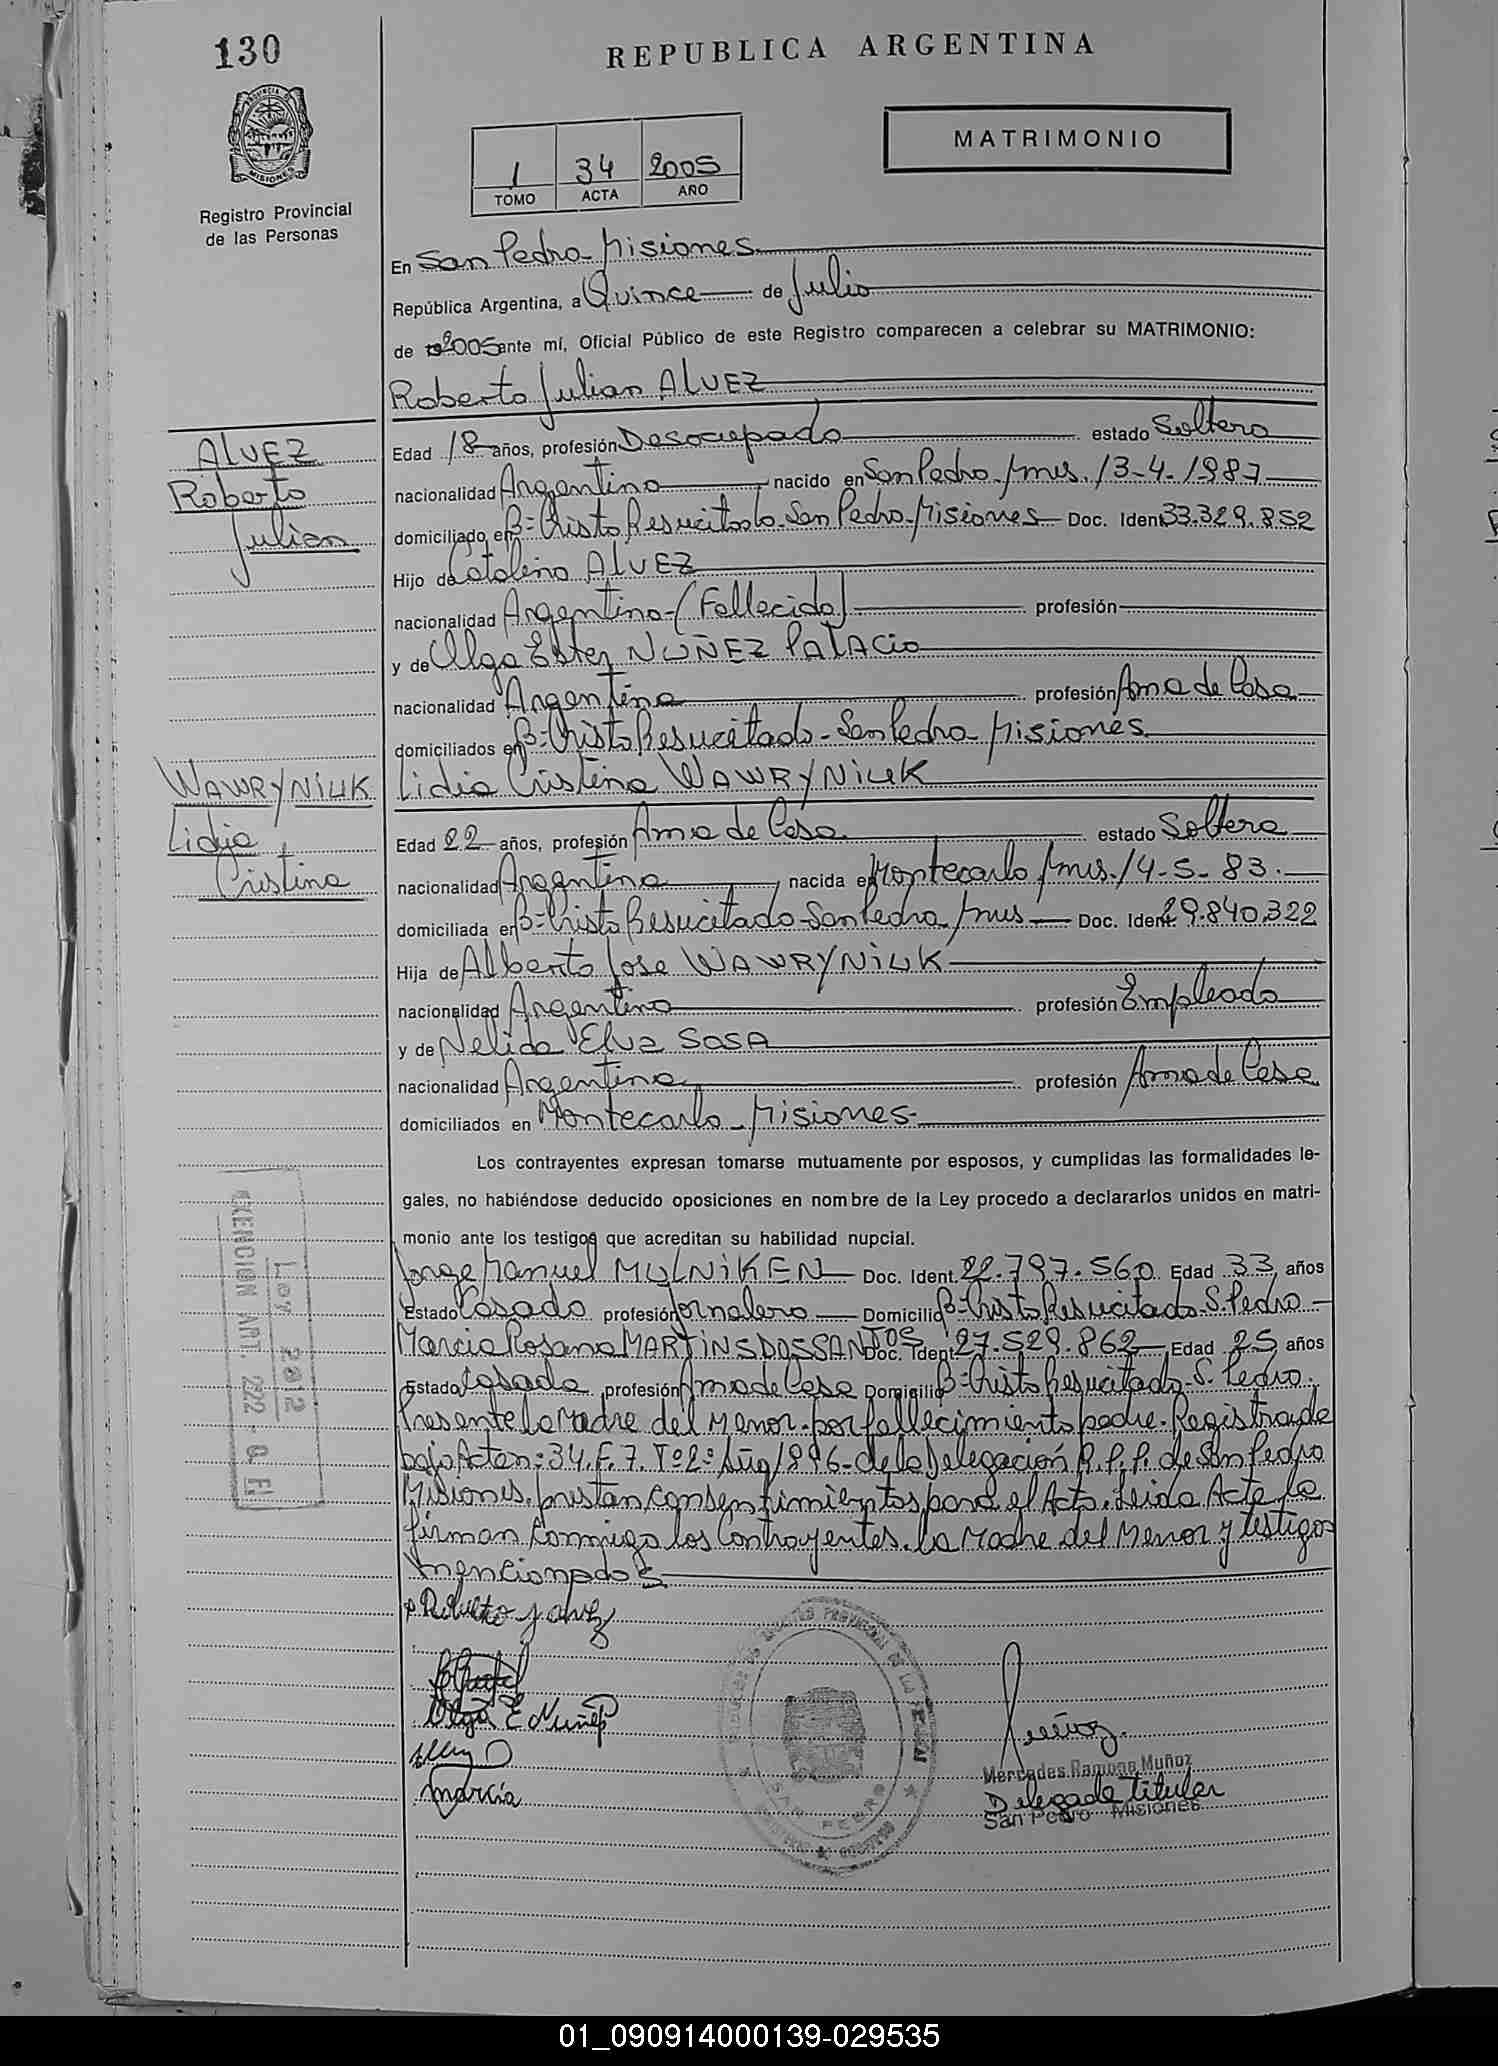 130
REPUBLICA ARGENTINA
MATRIMONIO
1 34 2005
TOMO ACTA AÑO
PROVINCIA DE
MISIONES
Registro Provincial
de las Personas
En San Pedro - Misiones
República Argentina, a Quince de Julio
de 2005 ante mí, Oficial Público de este Registro comparecen a celebrar su MATRIMONIO:
Roberto Julian ALVEZ
ALVEZ
Roberto
Julian
Edad 18 años, profesión Desocupado estado Soltero
nacionalidad Argentino nacido en San Pedro - Mnes. 13-4-1987
domiciliado en Bº= Cristo Resucitado - San Pedro - Misiones Doc. Ident. 33.329.852
Hijo de Catalino ALVEZ
nacionalidad Argentino - (Fallecido) profesión
y de Olga Ester NUÑEZ PALACIO
nacionalidad Argentina profesión Ama de Casa
domiciliados en Bº= Cristo Resucitado - San Pedro Misiones
WAWRYNIUK
Lidia
Cristina
Lidia Cristina WAWRYNIUK
Edad 22 años, profesión Ama de Casa estado Soltera
nacionalidad Argentina nacida en Montecarlo Mnes. 14-5-83.
domiciliada en Bº= Cristo Resucitado - San Pedro Mnes Doc. Ident. 29.840.322
Hija de Alberto Jose WAWRYNIUK
nacionalidad Argentino profesión Empleado
y de Nelida Elva SOSA
nacionalidad Argentina profesión Ama de Casa
domiciliados en Montecarlo - Misiones -
Los contrayentes expresan tomarse mutuamente por esposos, y cumplidas las formalidades le-
gales, no habiéndose deducido oposiciones en nombre de la Ley procedo a declararlos unidos en matri-
monio ante los testigos que acreditan su habilidad nupcial.
Jorge Manuel MULNIKEN Doc. Ident. 22.797.560 Edad 33 años
Estado Casado profesión Jornalero Domicilio Bº= Cristo Resucitado - S. Pedro -
Marcia Rosana MARTINS DOS SANTOS Doc. Ident. 27.529.862 Edad 25 años
Estado Casada profesión Ama de Casa Domicilio Bº= Cristo Resucitado - S. Pedro.
Presente la Madre del Menor - por fallecimiento padre - Registrado
bajo Acta nº: 34. F. 7. Tº 2º Año 1996 - de la Delegación R.P.P. de San Pedro
Misiones. prestan consentimientos para el Acto. Leida Acta la
firman conmigo los Contrayentes. la Madre del Menor y testigos
mencionados
EXENCION ART. 292 - C. F.
Ley 2812
Roberto J alvez
Olga E Nuñez
Marcia
SAN PEDRO
Muñoz.
Mercedes Ramona Muñoz
Delegada Titular
San Pedro Misiones
01_090914000139-029535